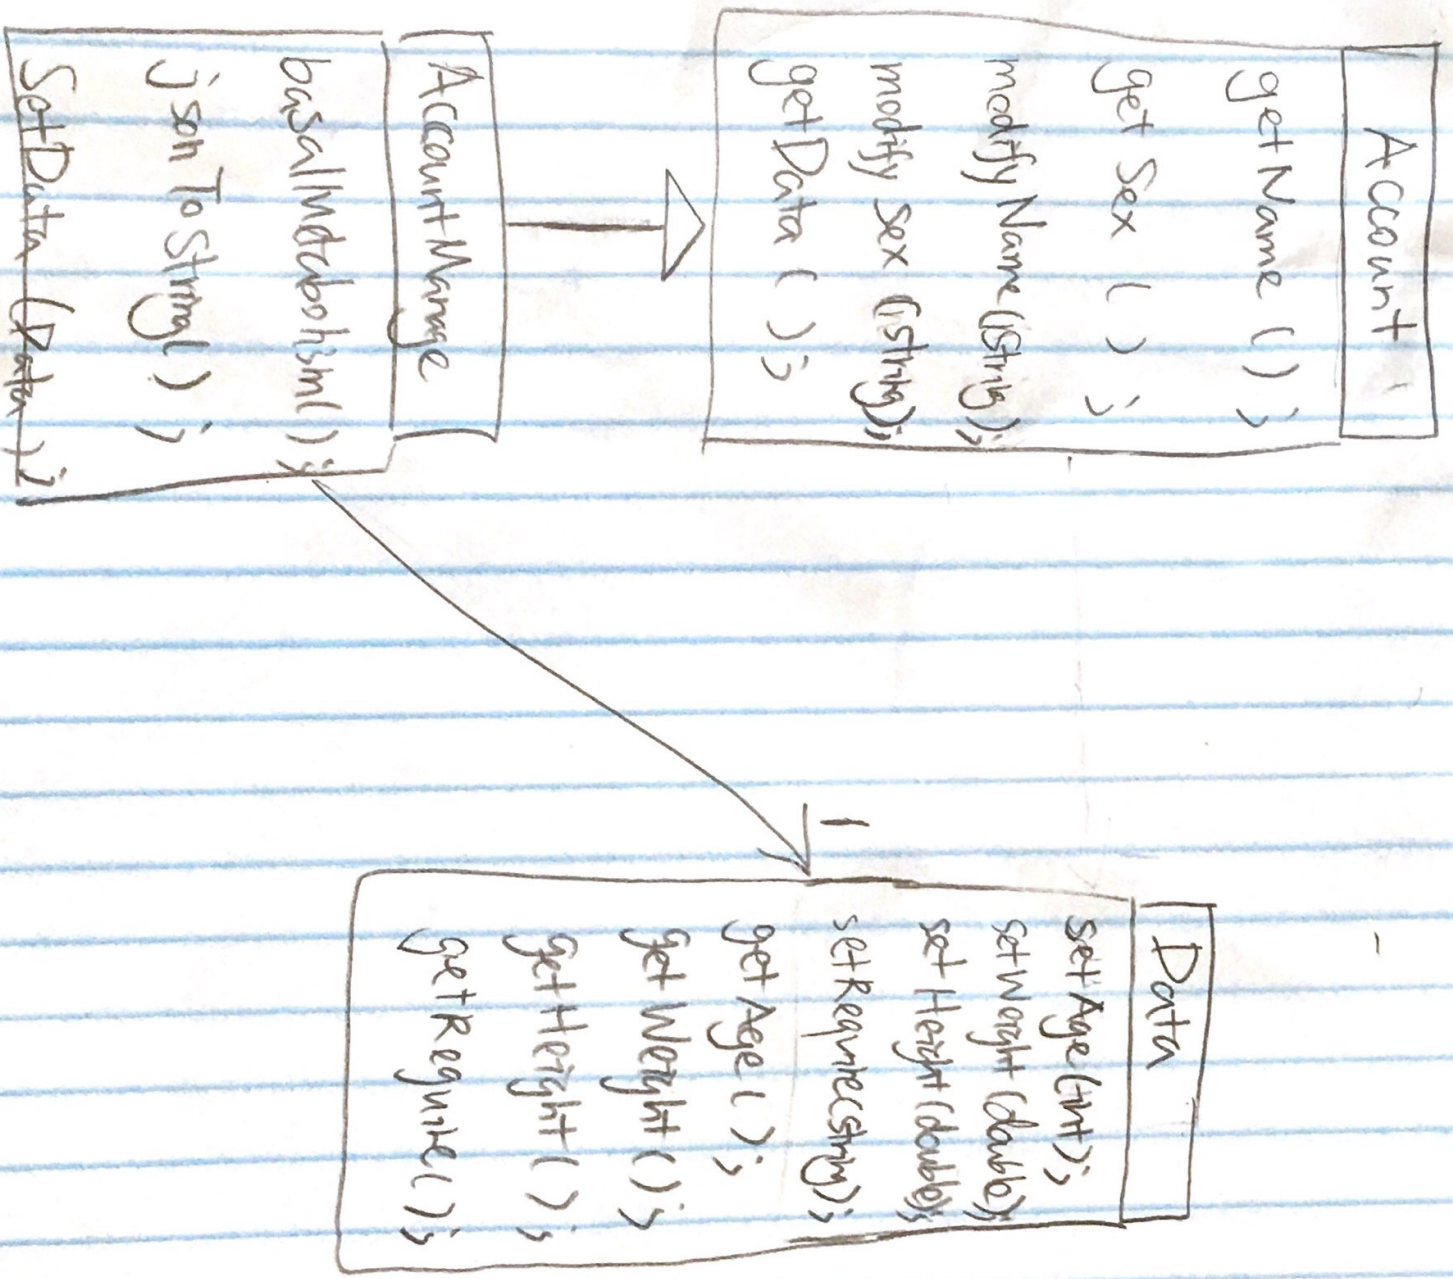 Account
getName ();
get Sex ( );
modify Name (string);
modify sex (string);
getData ( );
AccountManage
basalMetabolism( );
json ToString( );
SetData (Data);
1
Data
setAge(int);
setWeight(double);
setHeight(double);
setRequire(string);
getAge( );
getWeight( );
getHeight( );
getRequire( );